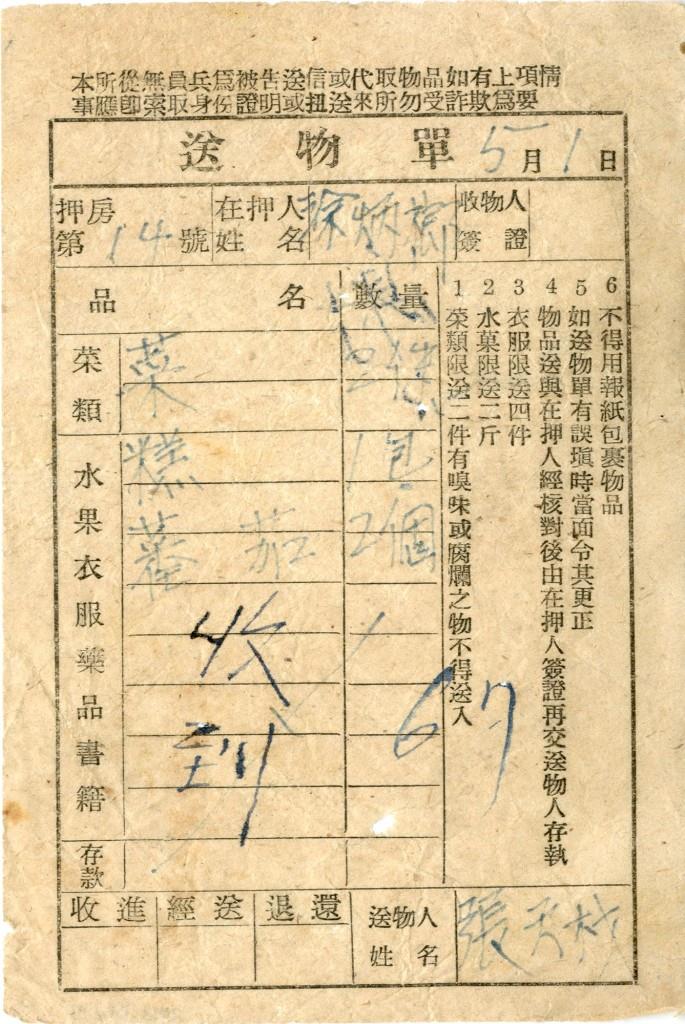 本所從無員兵爲被告送信或代取物品如有上項情
事應卽索取身份證明或扭送來所勿受詐欺爲要
送物單 5月1日
押房第14號
在押人姓名 徐炳
收物人簽證
品名 數量
菜類 菜
水果衣服藥品書籍
糕 1包
蕃茄 2個
收到
67
存款
1 菜類限送二件有嗅味或腐爛之物不得送入
2 水菓限送二斤
3 衣服限送四件
4 物品送與在押人經核對後由在押人簽證再交送物人存執
5 如送物單有誤塡時當面令其更正
6 不得用報紙包裹物品
收進 經送 退還
送物人姓名 張天